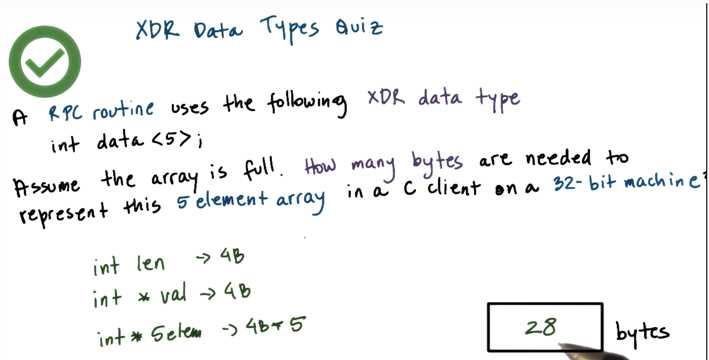 XDR Data Types Quiz
A RPC routine uses the following XDR data type
int data <5>;
Assume the array is full. How many bytes are needed to
represent this 5 element array in a C client on a 32-bit machine?
int len → 4B
int * val → 4B
int * 5elem → 4B * 5
28 bytes